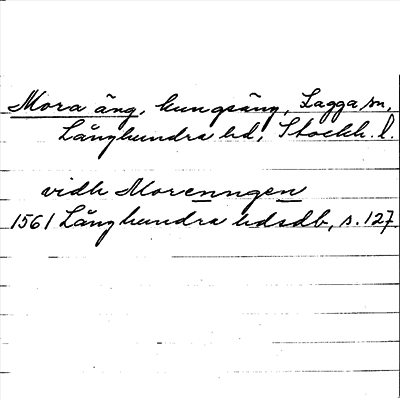 Mora äng, kungsäng, Lagga sn,
Långhundra hd, Stockh. l.
vidh Morenngen
1561 Långhundra hdsdb, s. 127.